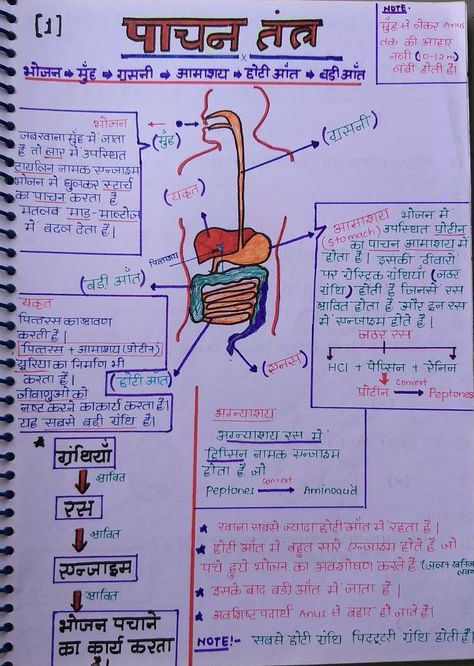 [1]
पाचन तंत्र
भोजन → मुँह → ग्रसनी → आमाशय → छोटी आँत → बडी आँत
NOTE:-
मुँह से लेकर Anus
तक की आहार
नली (0-12m)
लंबी होती है।
भोजन
जब खाना मुँह में जाता
है तो लार में उपस्थित
टायलिन नामक एन्जाइम
भोजन में घुलकर स्टार्च
का पाचन करता है
मतलब माड-माल्टोज
में बदल देता है।
(मुँह)
(ग्रसनी)
(यकृत)
पित्ताशय
(बडी आँत)
(छोटी आँत)
(एनस)
आमाशय
(stomach)
भोजन में
उपस्थित प्रोटीन
का पाचन आमाशय में
होता है। इसकी दीवारो
पर गैस्ट्रिक ग्रंथियाँ (जठर
ग्रंथि) होती है जिनसे रस
श्रावित होता है और इन रस
में एन्जाइम होते है।
जठर रस
HCl + पेप्सिन + रेनिन
प्रोटीन convert Peptones
यकृत
पित्तरस का श्रावण
करती है।
पित्तरस + आमाशय (प्रोटीन)
यूरिया का निर्माण भी
करता है।
जीवाणुओ को
नष्ट करने का कार्य करता है।
यह सबसे बडी ग्रंथि है।
अग्न्याशय
अग्न्याशय रस में
ट्रिप्सिन नामक एन्जाइम
होता है जो
Peptones convert Aminoacid
ग्रंथियाँ
श्रावित
रस
श्रावित
एन्जाइम
श्रावित
भोजन पचाने
का कार्य करता
★ खाना सबसे ज्यादा छोटी आँत में रहता है।
★ छोटी आँत में बहुत सारे एन्जाइम होते है जो
पचे हुये भोजन का अवशोषण करते है (जल+खनिज
लवण
★ इसके बाद बडी आँत में जाता है।
★ अवशिष्ट पदार्थ Anus से बहार हो जाते है।
NOTE!- सबसे छोटी ग्रंथि पिट्यूटरी ग्रंथि होती है